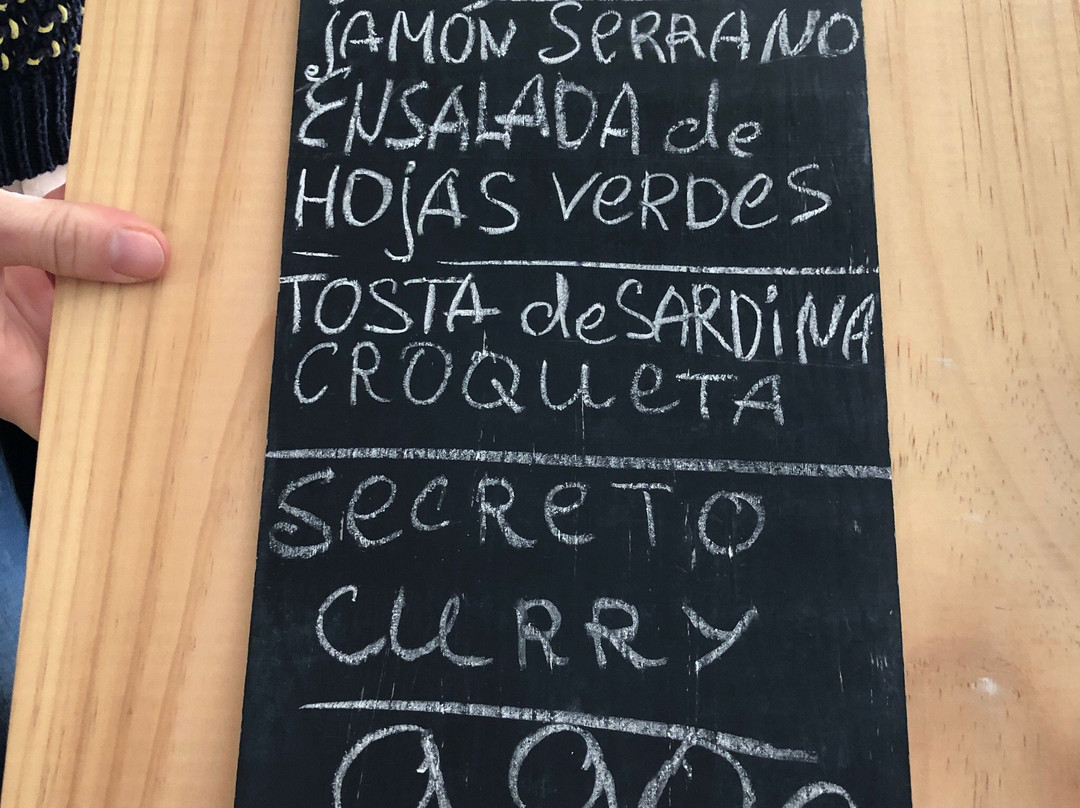 jAMÓN SeRRANO
ENSALADA de
HOjAS VeRDeS
TOSTA de SARDiNA
CROQueTA
SecReTO
CuRRY